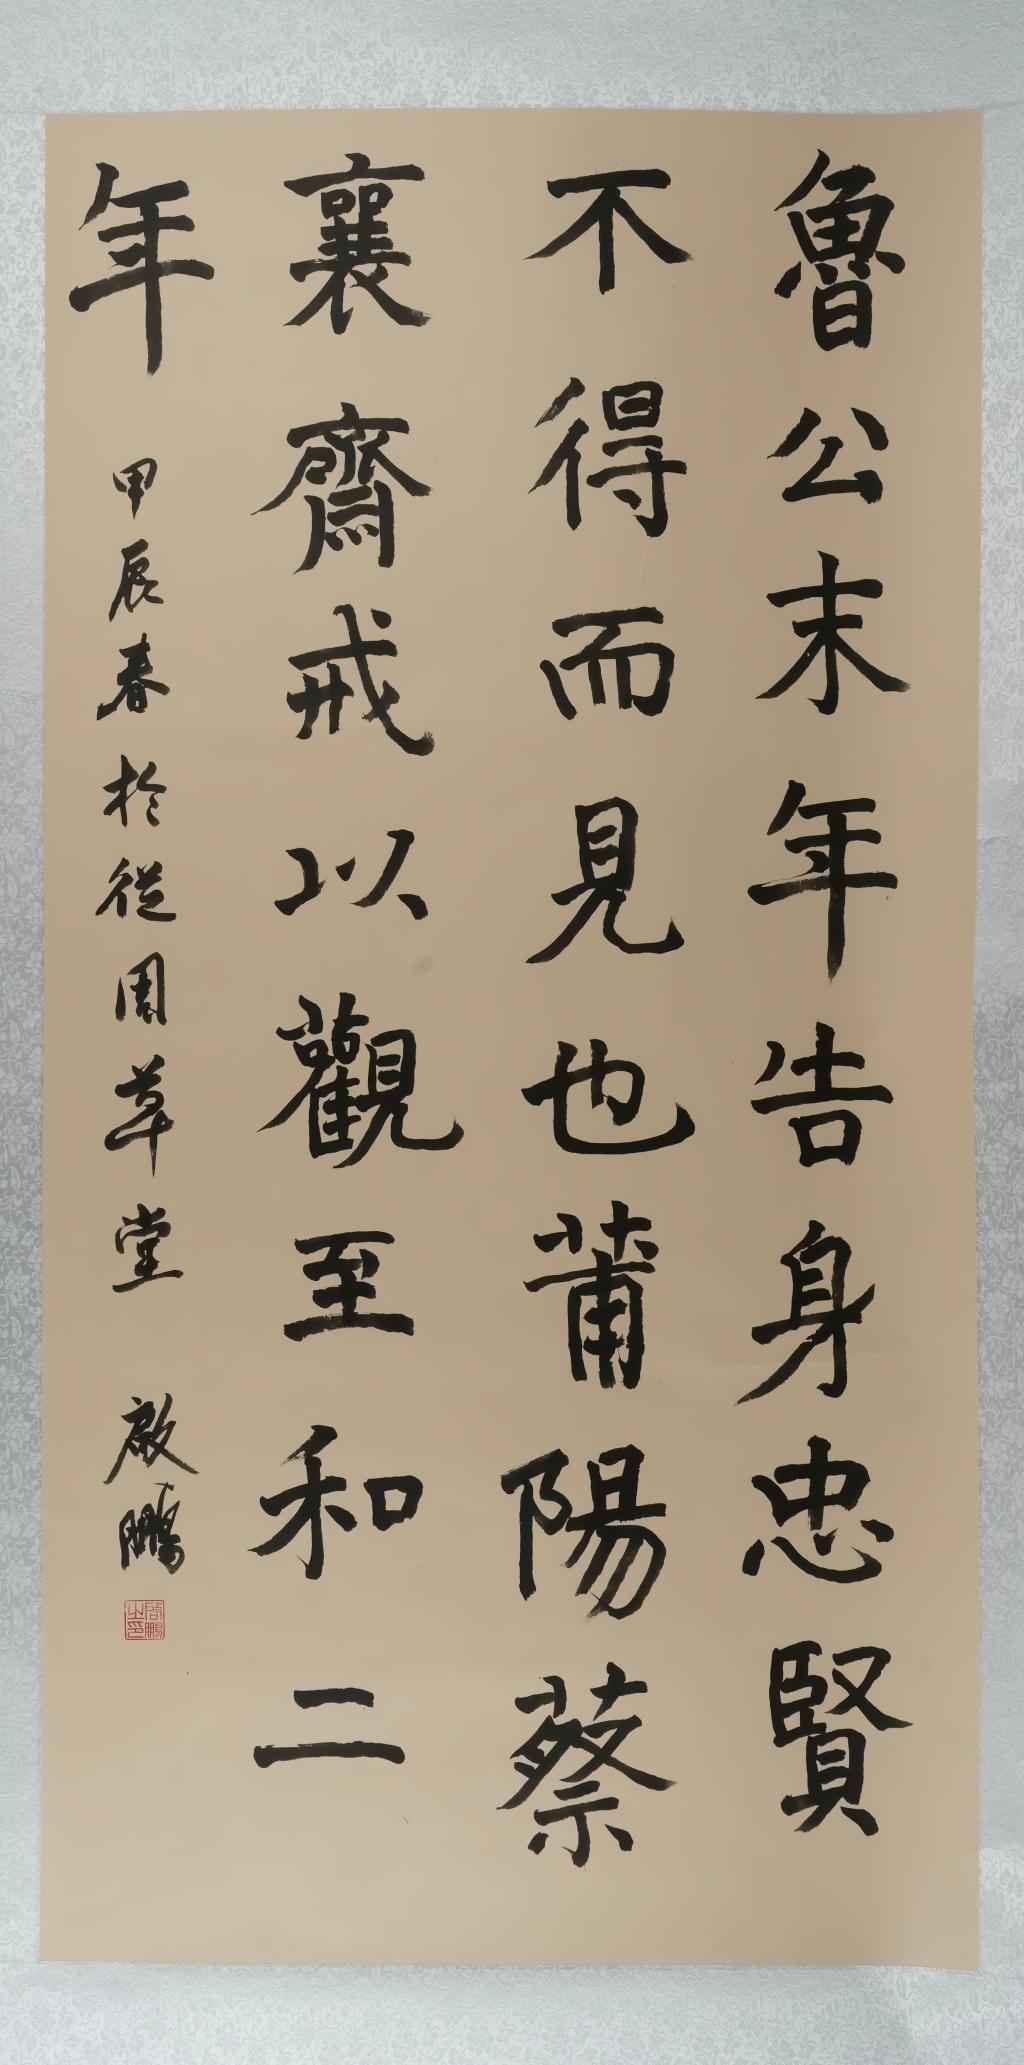 魯公末年告身忠賢
不得而見也莆陽蔡
襄齋戒以觀至和二
年
甲辰春於從周草堂 啟鵬
啟鵬之印